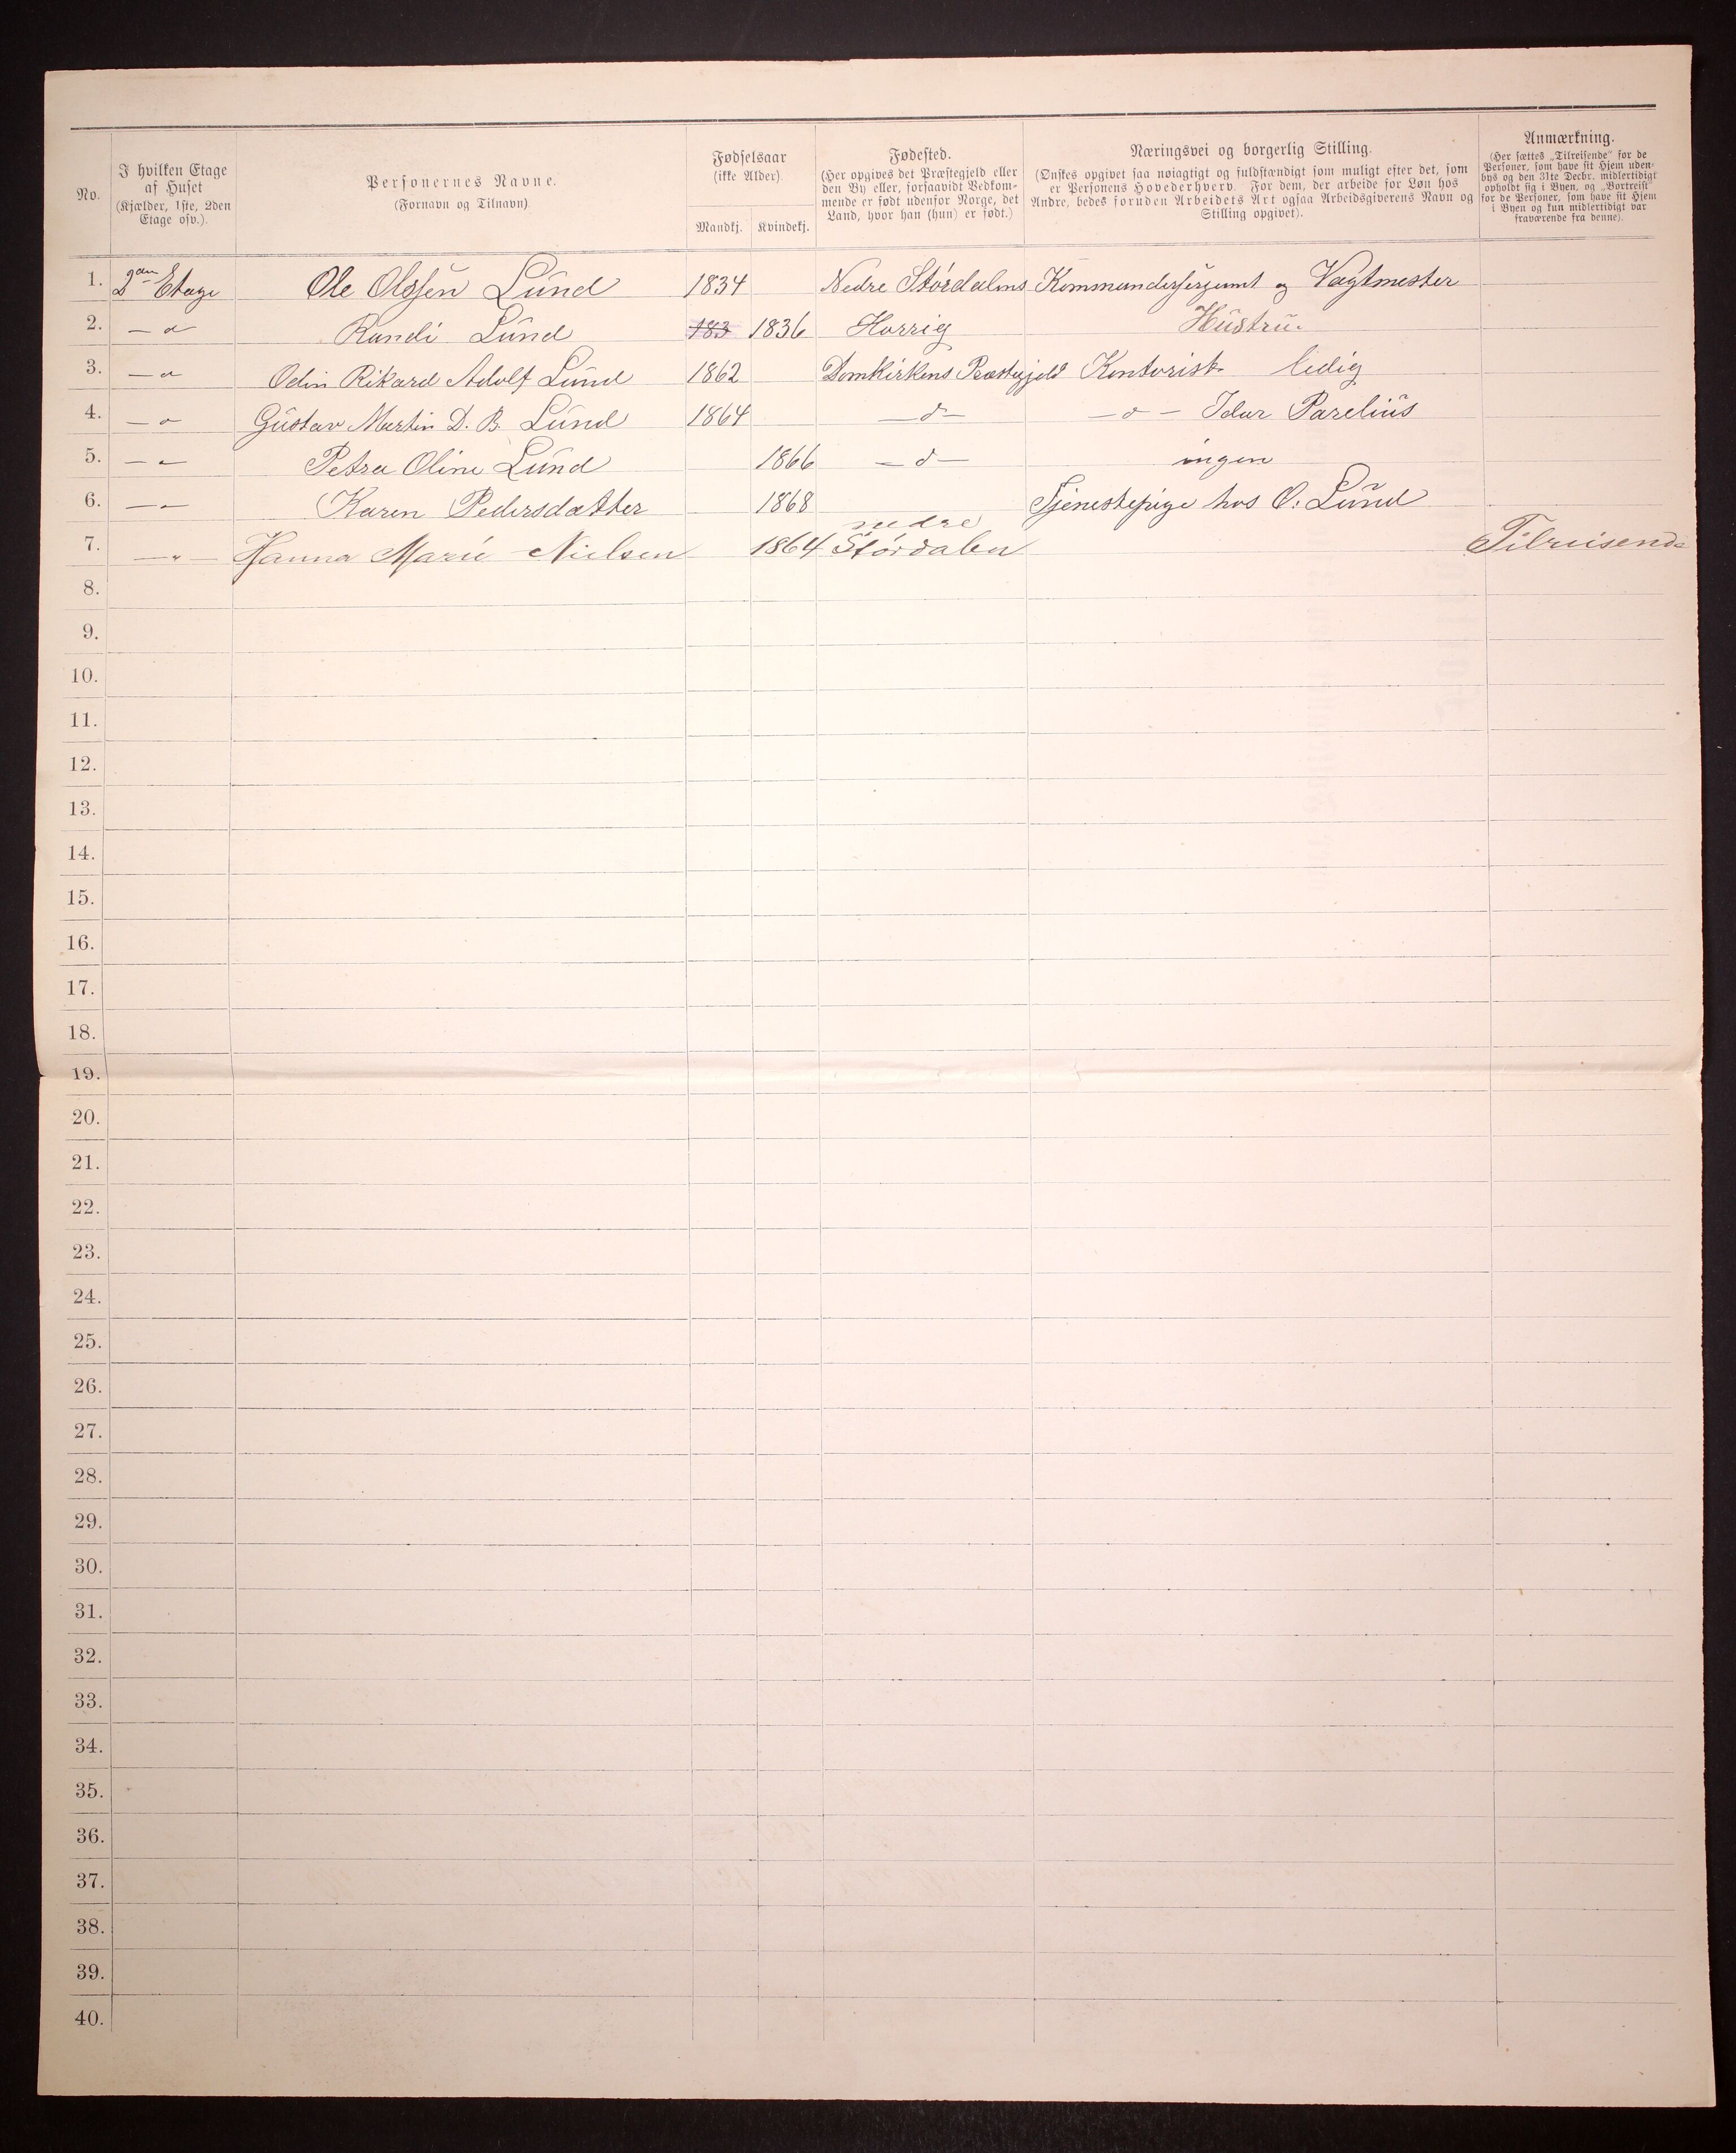 No.
I hvilken Etage
af Huset
(Kjælder, 1ste, 2den
Etage osv.).
Personernes Navne.
(Fornavn og Tilnavn).
Fødselsaar
(ikke Alder).
Mandkj. Kvindekj.
Fødested.
(Her opgives det Præstegjeld eller
den By eller, forsaavidt Vedkom-
mende er født udenfor Norge, det
Land, hvor han (hun) er født.)
Næringsvei og borgerlig Stilling.
(Ønskes opgivet saa nøiagtigt og fuldstændigt som muligt efter det, som
er Personens Hovederhverv. For dem, der arbeide for Løn hos
Andre, bedes foruden Arbeidets Art ogsaa Arbeidsgiverens Navn og
Stilling opgivet).
Anmærkning.
(Her sættes „Tilreisende" for de
Personer, som have sit Hjem uden-
bys og den 31te Decbr. midlertidigt
opholdt sig i Byen, og „Bortreist"
for de Personer, som have sit Hjem
i Byen og kun midlertidigt var
fraværende fra denne).
1. 2den Etage Ole Olssen Lund 1834 Nedre Stördalens Kommandersergeant og Vagtmester
2. — d Randi Lund 183 1836 Horrig Hustru.
3. — d Odin Rikard Adolf Lund 1862 Domkirkens Præstegjeld Kontorist ledig
4. — d Gustav Martin D. B. Lund 1864 — d — — d — Idar Parelius
5. — " Petra Oline Lund 1866 — d — ingen
6. — " Karen Pedersdatter 1868 Tjenestepige hos O. Lund
7. — " — Hanna Marie Nielsen 1864 nedre Stördalen Tilreisende
8.
9.
10.
11.
12.
13.
14.
15.
16.
17.
18.
19.
20.
21.
22.
23.
24.
25.
26.
27.
28.
29.
30.
31.
32.
33.
34.
35.
36.
37.
38.
39.
40.